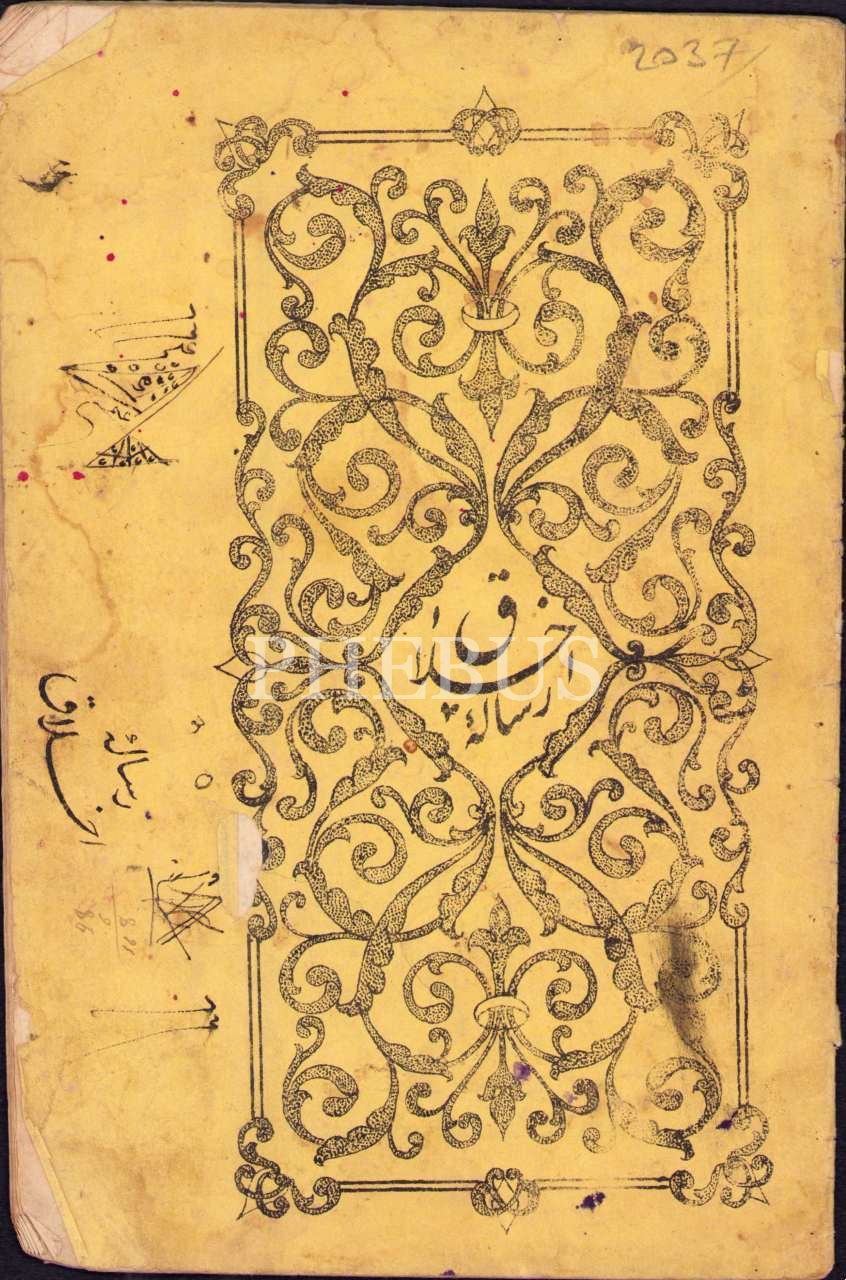 2037
رسالهٔ
اخلاق
PHEBUS
رسالهٔ
اخلاق
98
6
108